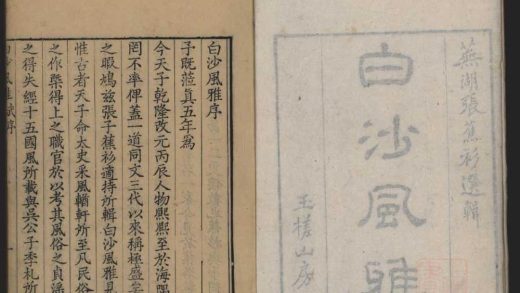 蕪湖張蕉衫選輯
白沙風雅
玉槎山房
白沙風雅序
予既蒞真五年爲
今天子乾隆改元丙辰人物熙熙至於海隅
罔不率俾蓋一道同文三代以來稱極盛
之暇鳩茲張子蕉衫適持所輯白沙風雅見
惟古者天子命太史采風輶軒所至凡民俗
之作槩得上之職官於以考其風俗之貞淫
之得失經十五國風所載與吳公子季札所